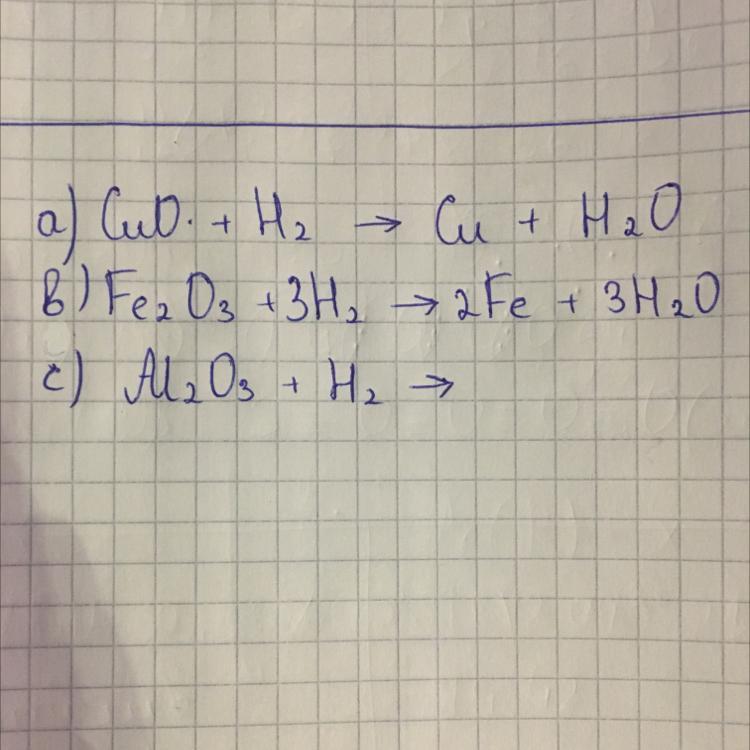 a) CuO. + H₂ → Cu + H₂O
b) Fe₂O₃ + 3H₂ → 2Fe + 3H₂O
c) Al₂O₃ + H₂ →